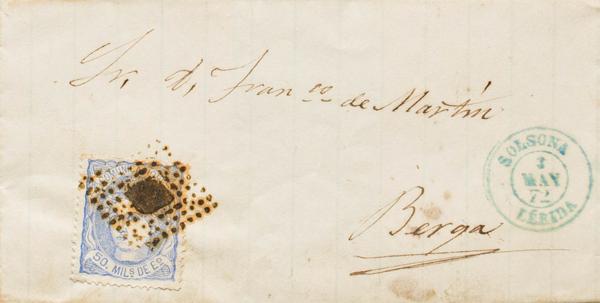 Sr. D. Franco de Martín
Berga
SOLSONA
3
MAY
72
LÉRIDA
50. MILS DE Eo.